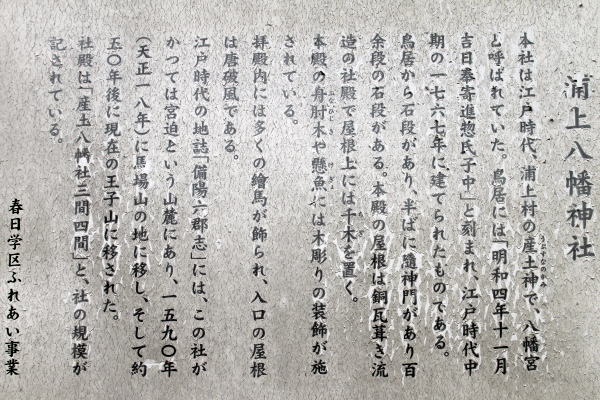 浦上八幡神社
本社は江戸時代、浦上村の産土神で、八幡宮
うぶすなのかみ
と呼ばれていた。鳥居には「明和四年十一月
吉日奉寄進惣氏子中」と刻まれ、江戸時代中
期の一七六七年に建てられたものである。
鳥居から石段があり、半ばに隨神門があり百
余段の石段がある。本殿の屋根は銅瓦葺き流
造の社殿で屋根上には千木を置く。
ちぎ
本殿の舟肘木や懸魚には木彫りの装飾が施
ふなひじき
げぎょ
されている。
拝殿内には多くの繪馬が飾られ、入口の屋根
は唐破風である。
江戸時代の地誌「備陽六郡志」には、この社が
かつては宮迫という山麓にあり、一五九〇年
(天正一八年)に馬場山の地に移し、そして約
五〇年後に現在の王子山に移された。
社殿は「産土八幡社三間四間」と、社の規模が
記されている。
春日学区ふれあい事業